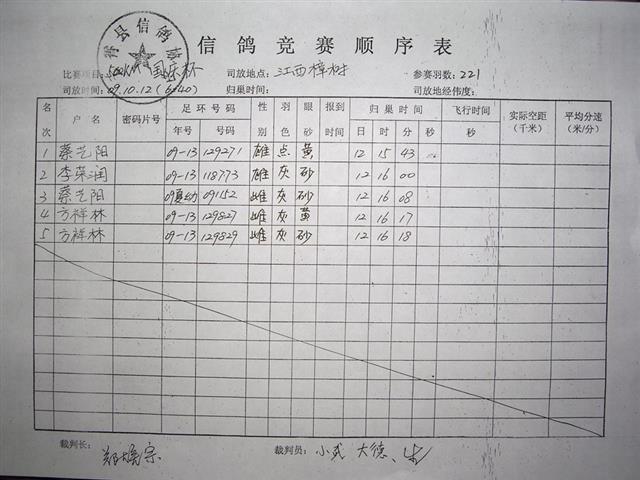 县信鸽协
信鸽竞赛顺序表
比赛项目: 500KM 国庆杯 司放地点: 江西樟树 参赛羽数: 221
司放时间: 09.10.12 (6:40) 归巢时间: 司放地经纬度:
名次 户名 密码片号 足环号码 性别 羽色 眼砂 报到时间 归巢时间 飞行时间 实际空距(千米) 平均分速(米/分)
年号 号码 日 时 分 秒 秒
1 蔡艺阳 09-13 129271 雄 点 黄 12 15 43
2 李荣润 09-13 118773 雄 灰 砂 12 16 00
3 蔡艺阳 09 09152 雌 灰 砂 12 16 08
4 方祥林 09-13 129827 雌 灰 黄 12 16 17
5 方祥林 09-13 129829 雌 灰 砂 12 16 18
裁判长: 郑 宗 裁判员: 小武 大德、